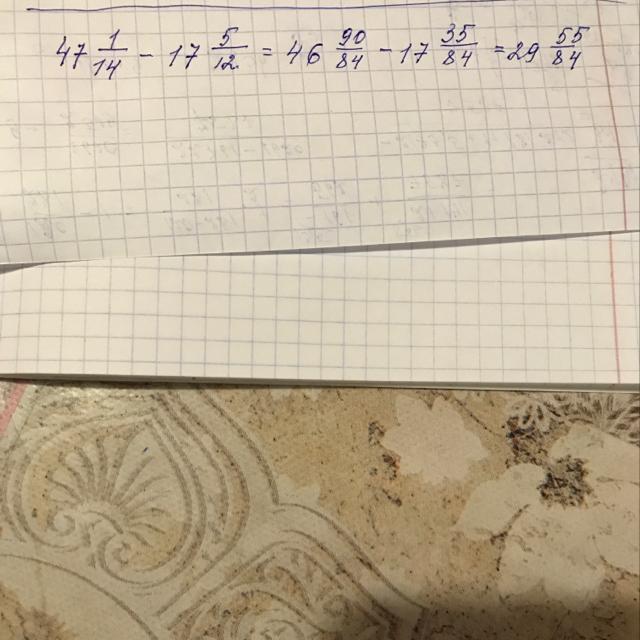 47 1/14 - 17 5/12 = 46 90/84 - 17 35/84 = 29 55/84